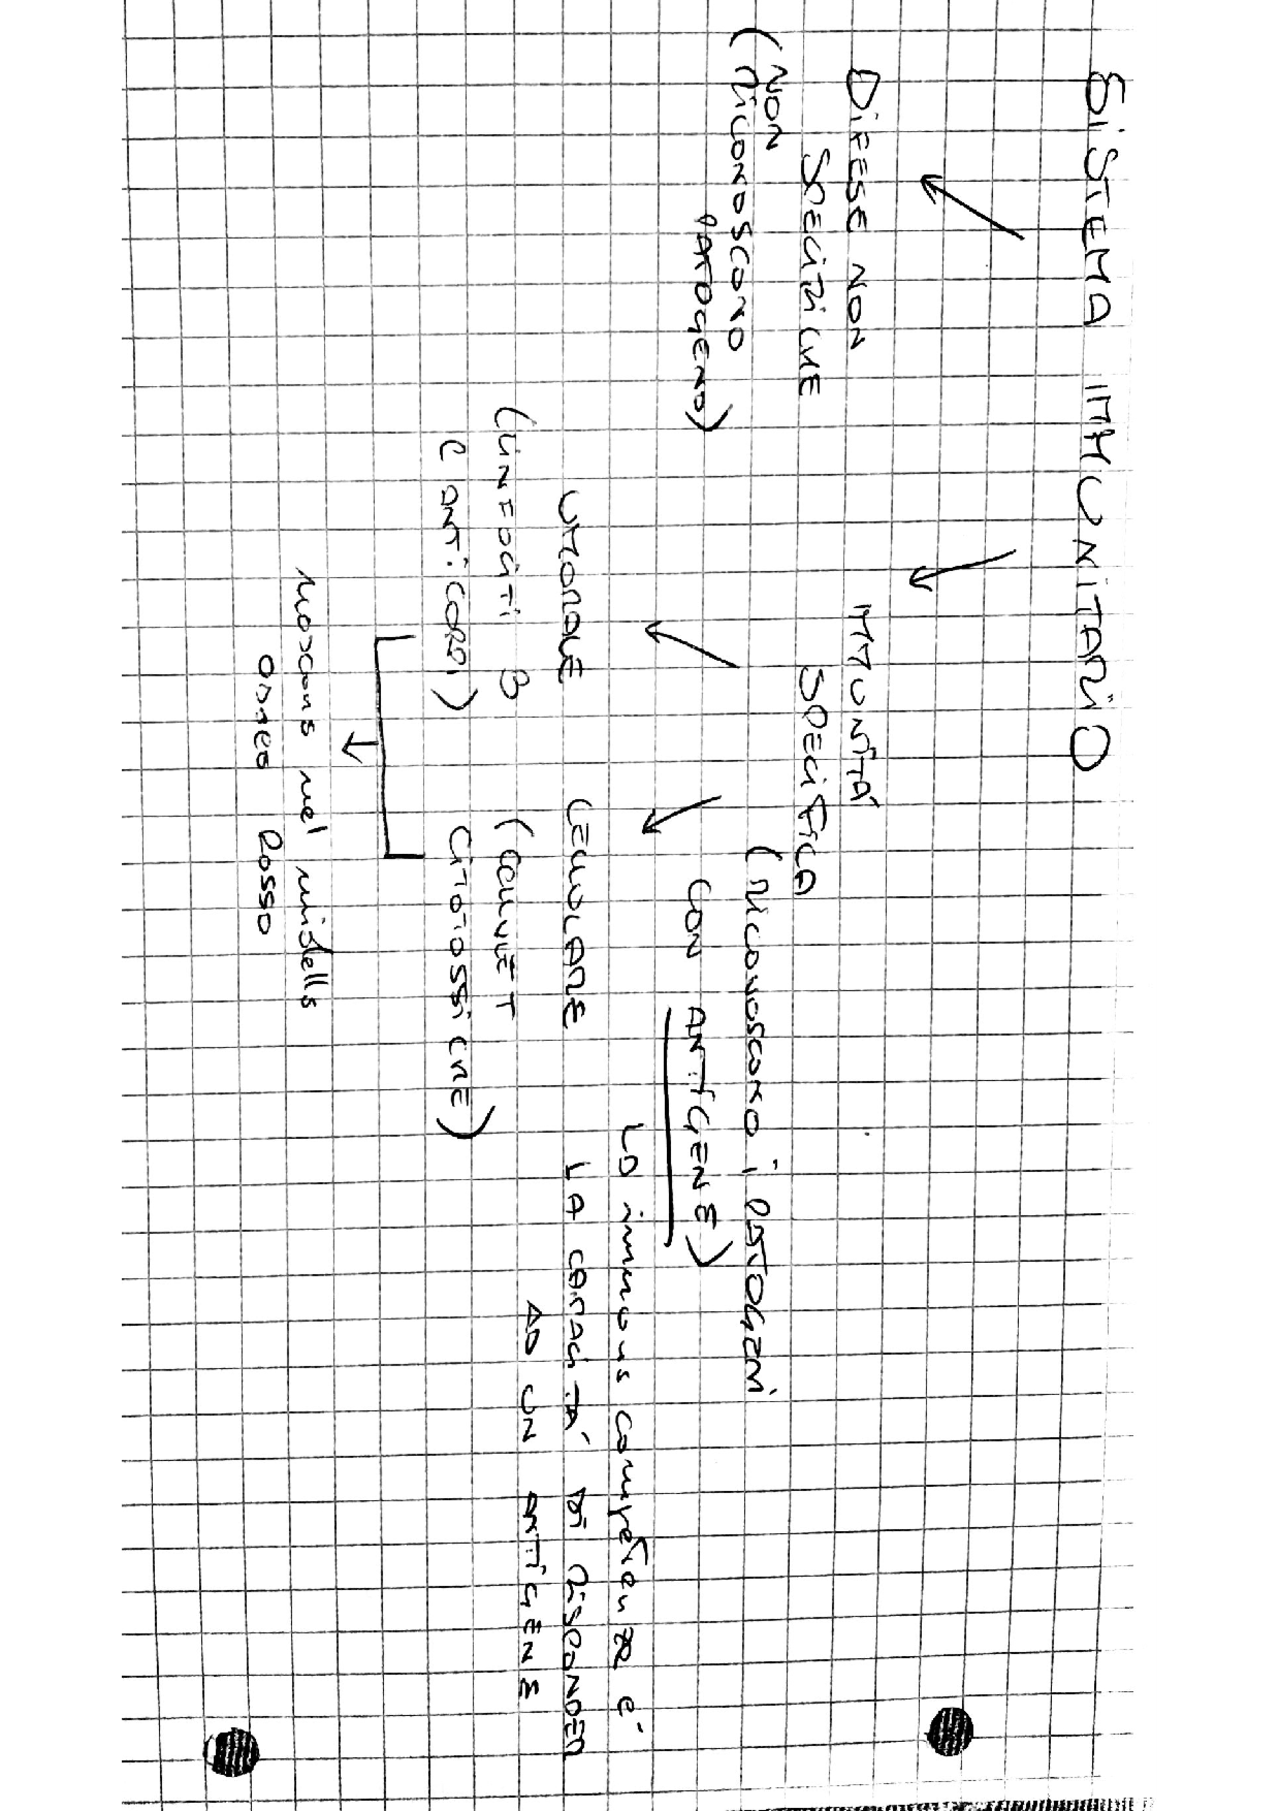 SISTEMA IMMUNITARIO
DIFESE NON
SPECIFICHE
(NON
RICONOSCONO
PATOGENO)
IMMUNITÁ
SPECIFICA
(RICONOSCONO i PATOGENI
CON ANTIGENE)
UMORALE
(LINFOCITI B
E ANTICORPI)
CELLULARE
(CELLULE T
CITOTOSSICHE)
Nascono nel midollo
osseo Rosso
LA immuno competenza é
LA CAPACITÁ DI RISPONDER
AD UN ANTIGENE